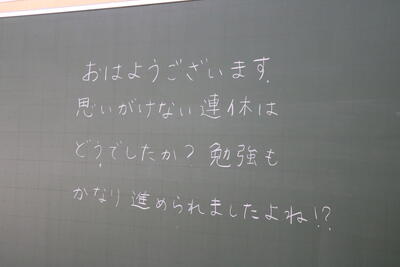 おはようございます.
思いがけない連休は
どうでしたか？勉強も
かなり進められましたよね!?